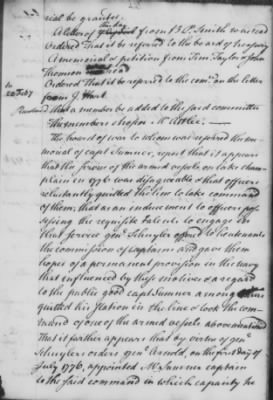 rial be granted.
A letter of this day from B. P. Smith was read
Ordered That it be referred to the board of treasury
A memorial & petition from Tim. Taylor & John
Thomson read
Ordered That it be referred to the comee. on the letter
from J. Hart.
Resolved That a member be added to the said committee
The member chosen Mr
The board of war to whom was referred the me-
morial of capt Sumner, report that it appears
that the service of the armed vessels on lake cham-
plain in 1776 was disagreeable & that officers
reluctantly quitted the line to take command
of them; that as an inducement to officers pos-
sessing the requisite talents to engage in
that service genl Schuyler offered to lieutenants
the commission of captains and gave them
hopes of a permanent provision in the navy
that influenced by these motives & a regard
to the public good capt Sumner among others
quitted his station in the line & took the com-
mand of one of the armed vessels abovementioned
That it further appears that by virtue of genl
Schuylers orders genl Arnold, on the first day of
July 1776, appointed Mr Sumner captain
to the said command in which capacity he